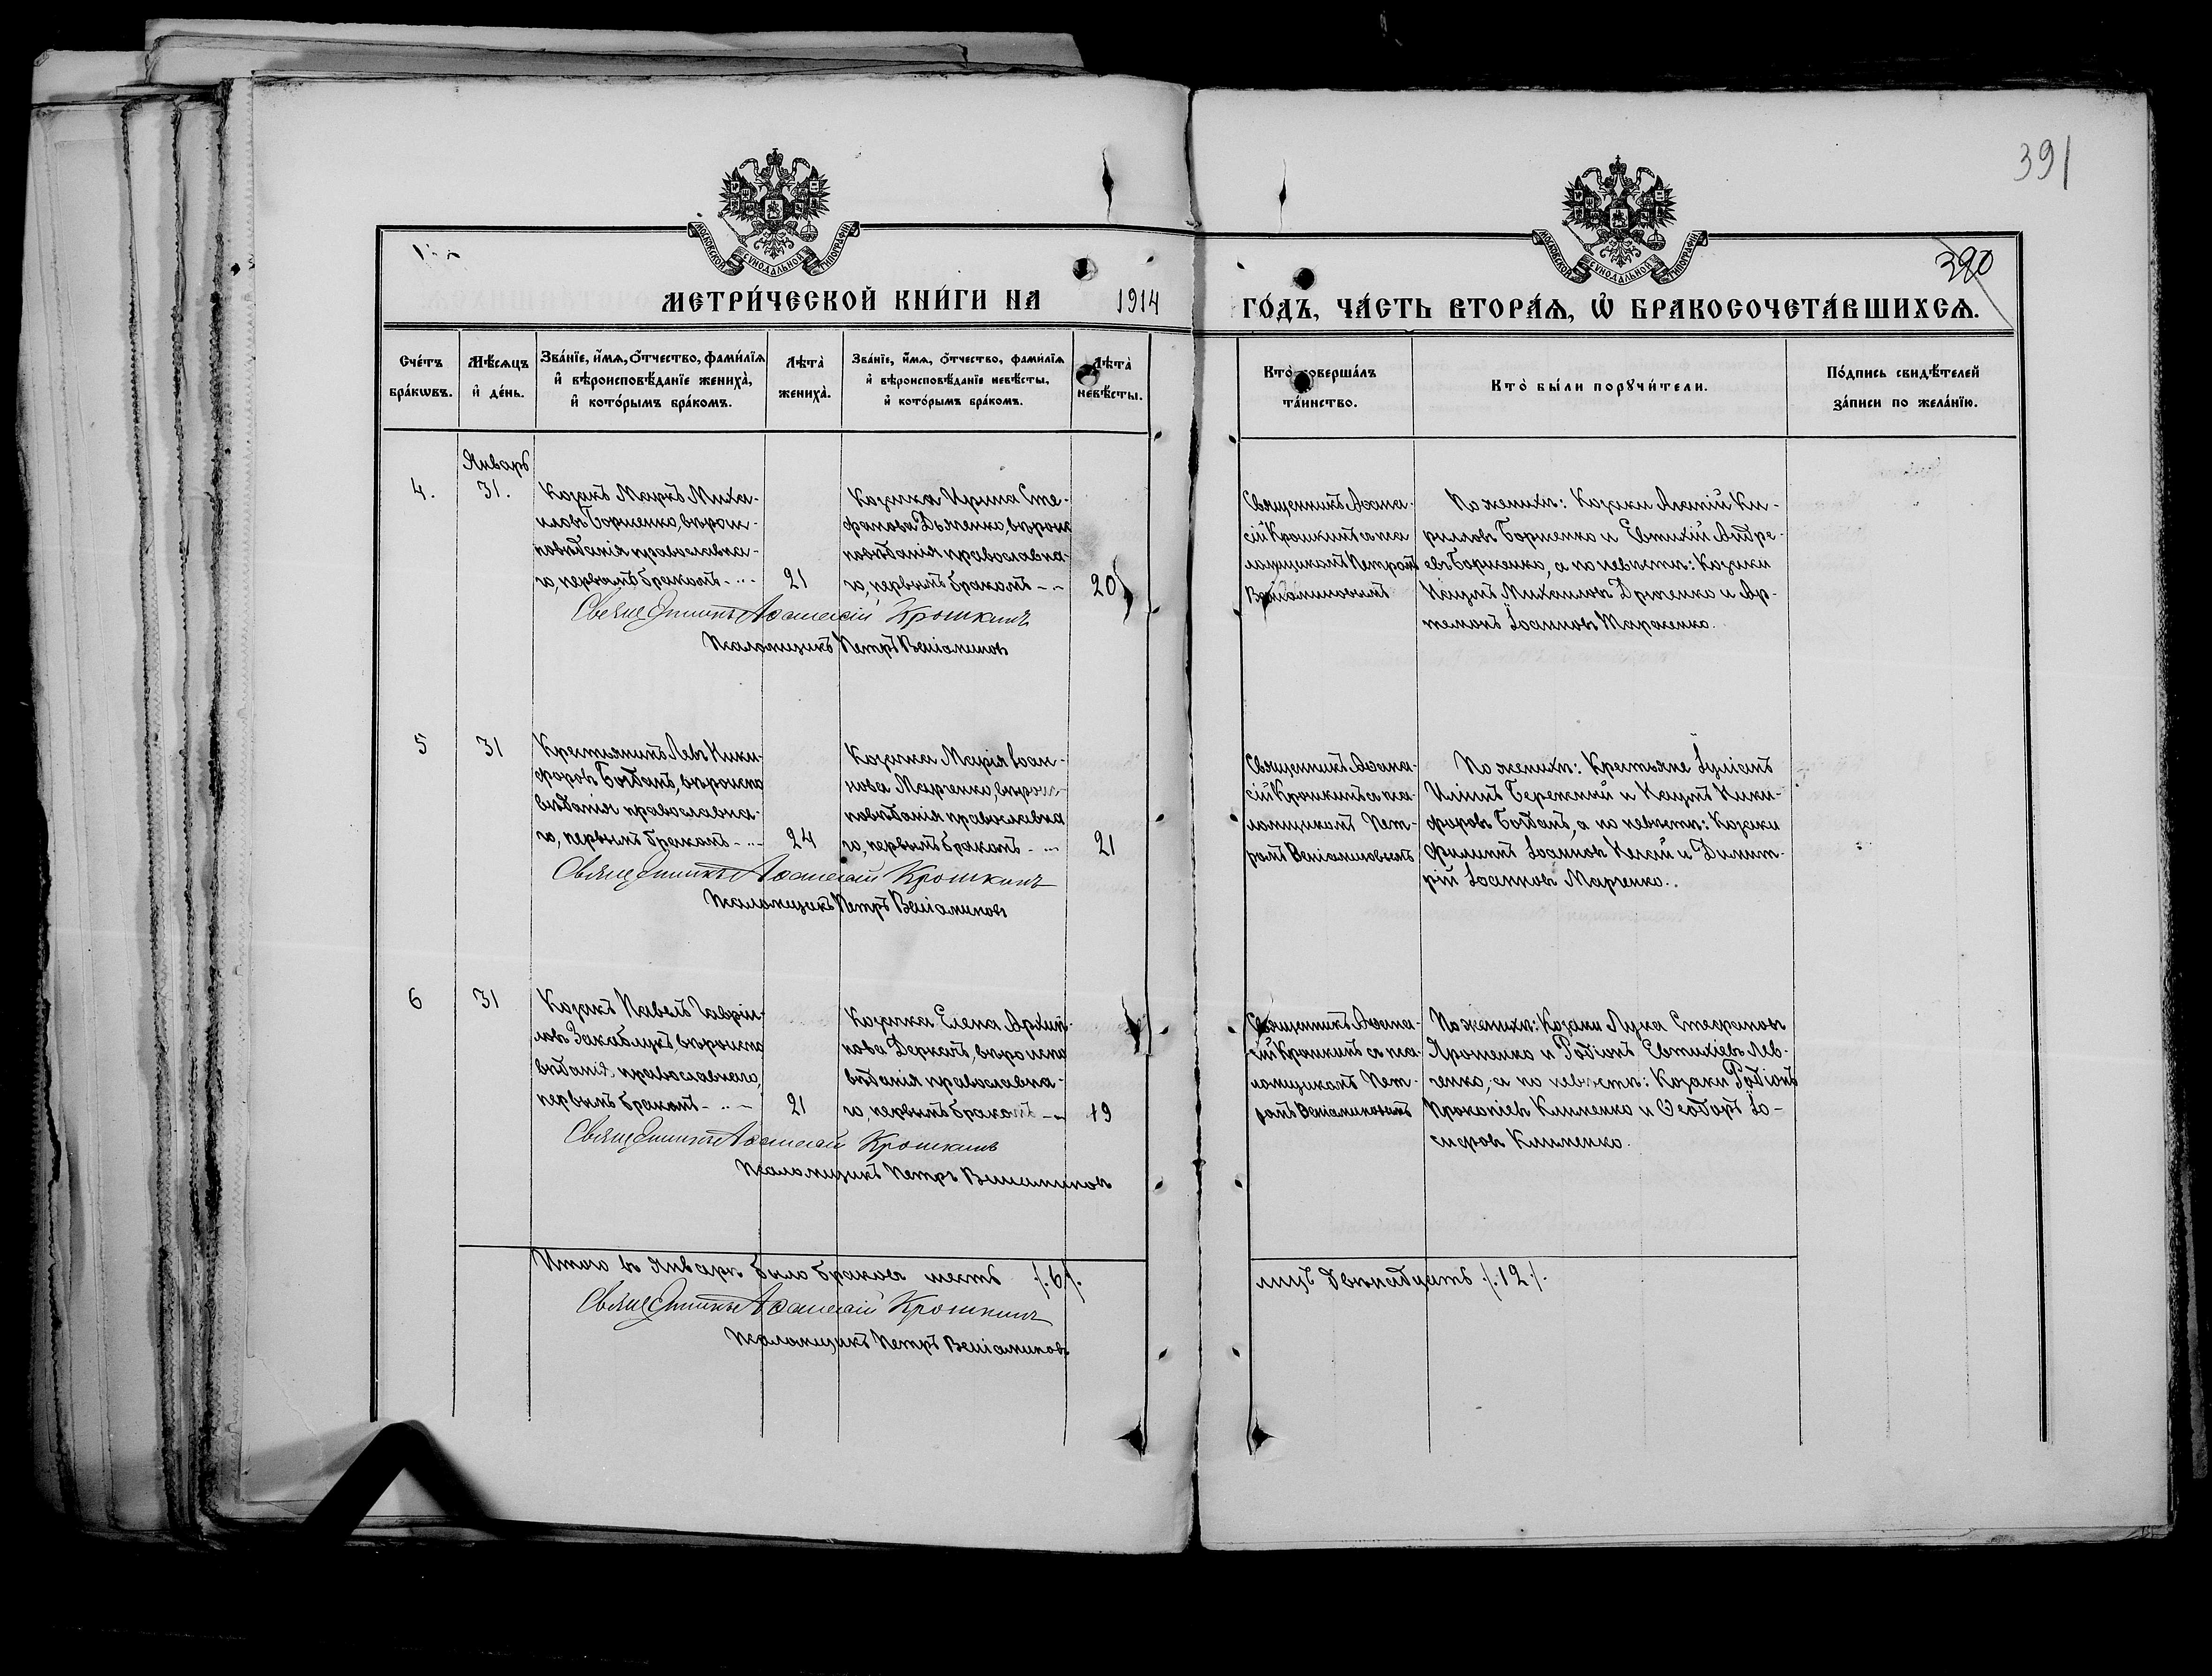 391
390
МОСКОВСКОЙ СѴНОДАЛЬНОЙ ТИПОГРАФІИ
МОСКОВСКОЙ СѴНОДАЛЬНОЙ ТИПОГРАФІИ
МЕТРИ́ЧЕСКОЙ КНИ́ГИ НА 1914 ГО́ДЪ, ЧА́СТЬ ВТОРА́Ѧ, Ѡ҆ БРАКОСОЧЕТА́ВШИХСѦ.
Сче́тъ бра́кѡвъ.
Мѣ́сѧцъ и҆ де́нь.
Зва́нїе, и҆́мѧ, ѻ҆́тчество, фами́лїѧ
и҆ вѣроисповѣ́данїе жениха̀,
и҆ кото́рымъ бра́комъ.
Лѣта̀ жениха̀.
Зва́нїе, и҆́мѧ, ѻ҆́тчество, фами́лїѧ
и҆ вѣроисповѣ́данїе невѣ́сты,
и҆ кото́рымъ бра́комъ.
Лѣта̀ невѣ́сты.
Кто̀ соверша́лъ
та́инство.
Кто̀ бы́ли порꙋчи́тели.
По́дпись свидѣ́телей
за́писи по жела́нїю.
Январь
4.
31.
Козакъ Маркъ Миха-
иловъ Борщенко, вѣроис-
повѣданія православна-
го, первымъ бракомъ
21
Козачка Ирина Сте-
фанова Дьяченко, вѣроис
повѣданія православна-
го, первымъ бракомъ
20
Священникъ Аѳана-
сій Крошкинъ съ пса
ломщикомъ Петромъ
Веніаминовымъ
По женихѣ: Козаки
Ки-
рилловъ Борщенко и Евтихій Андре-
евъ Борщенко, а по невѣстѣ: Козаки
Наумъ Михаиловъ и Ар-
темонъ Іоанновъ
Священникъ Аѳанасій Крошкинъ
Псаломщикъ Петръ Веніаминовъ
5
31
Крестьянинъ Левъ Ники-
форовъ Богданъ, вѣроиспо
вѣданія православна-
го, первымъ бракомъ
24
Козачка Марія Іоан-
нова Марченко, вѣроис-
повѣданія православна
го, первымъ бракомъ
21
Священникъ Аѳана-
сій Крошкинъ съ пса-
ломщикомъ Пет-
ромъ Веніаминовымъ
По женихѣ: Крестьяне Іуліанъ
Бережный и Наумъ Ники-
форовъ Богданъ, а по невѣстѣ: Козаки
Филиппъ Іоанновъ и Димит-
рій Іоанновъ Марченко.
Священникъ Аѳанасій Крошкинъ
Псаломщикъ Петръ Веніаминовъ
6
31
Козакъ Павелъ Гаврiи-
ловъ Закаблукъ, вѣроиспо
вѣданія православнаго,
первымъ бракомъ
21
Козачка Елена Архип-
пова Деркачъ, вѣроиспо
вѣданія православна-
го, первымъ бракомъ
19
Священникъ Аѳана-
сій Крошкинъ съ пса-
ломщикомъ Пет-
ромъ Веніаминовымъ
По женихѣ: Козаки Лука Стефановъ
Ярошенко и Родіонъ Евтихіевъ Лев-
ченко, а по невѣстѣ: Козаки Родіонъ
Прокопіевъ Клименко и Ѳеодоръ Іо-
сифовъ Клименко.
Священникъ Аѳанасій Крошкинъ
Псаломщикъ Петръ Веніаминовъ
Итого въ Январѣ было браковъ шесть /.6/. лицъ двѣнадцать /.12/.
Священникъ Аѳанасій Крошкинъ
Псаломщикъ Петръ Веніаминовъ